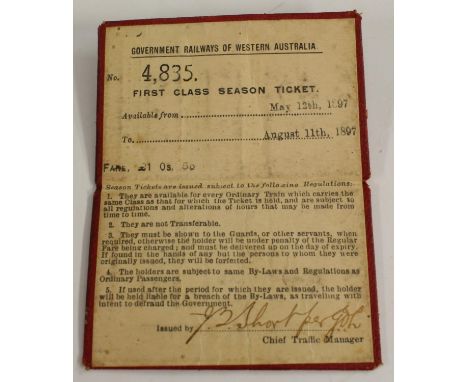 GOVERNMENT RAILWAYS OF WESTERN AUSTRALIA.
No. 4,835.
FIRST CLASS SEASON TICKET.
Available from May 12th, 1897
To August 11th, 1897
FARE,
Season Tickets are issued subject to the following Regulations:
1. They are available for every Ordinary Train which carries the
same Class as that for which the Ticket is held, and are subject to
all regulations and alterations of hours that may be made from
time to time.
2. They are not Transferable.
3. They must be shown to the Guards, or other servants, when
required, otherwise the holder will be under penalty of the Regular
Fare being charged; and must be delivered up on the day of expiry.
If found in the hands of any but the persons to whom they were
originally issued, they will be forfeited.
4. The holders are subject to same By-Laws and Regulations as
Ordinary Passengers.
5. If used after the period for which they are issued, the holder
will be held liable for a breach of the By-Laws, as travelling with
intent to defraud the Government.
Issued by Short per
Chief Traffic Manager